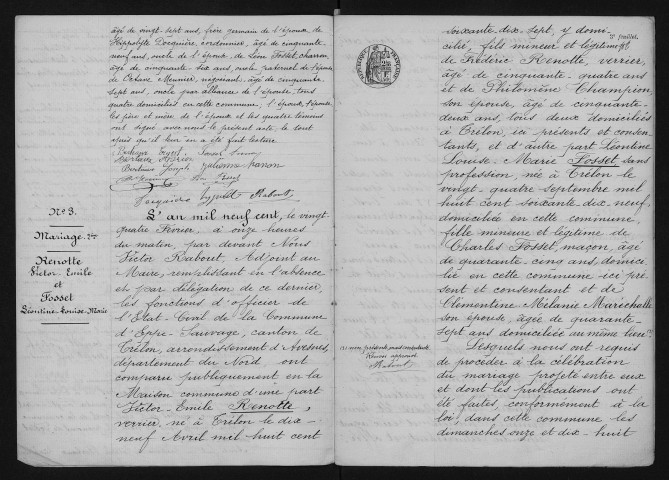 âgé de vingt-sept ans, frère germain de l'épouse, de
Hippolyte Dorquière, cordonnier, âgé de cinquante-
neuf ans, oncle de l'époux, de Léon Fosset, charron,
âgé de cinquante-six ans, oncle paternel de l'épouse,
de Octave Meunier, négociant, âgé de cinquante
sept ans, oncle par alliance de l'épouse, tous
quatre domiciliés en cette commune; l'époux, l'épouse
les père et mère de l'époux et les quatre témoins
ont signé avec nous le présent acte, le tout
après qu'il leur en a été fait lecture.
Joseph
Fosset
Rabout
N° 3.
Mariage
Renotte
Victor-Emile
et
Fosset
Léontine-Louise-Marie
L'an mil neuf cent, le vingt-
quatre Février, à onze heures
du matin, par devant Nous
Victor Rabout, Adjoint au
Maire, remplissant en l'absence
et par délégation de ce dernier,
les fonctions d'officier de
l'Etat-Civil de la Commune
d'Eppe-Sauvage, canton de
Trélon, arrondissement d'Avesnes,
département du Nord ont
comparu publiquement en la
Maison commune d'une part
Victor-Emile Renotte,
verrier, né à Trélon le dix-
neuf Avril mil huit cent
3e feuillet.
soixante-dix-sept, y domi-
cilié, fils mineur et légitime
de Frédéric Renotte, verrier,
âgé de cinquante-quatre ans
et de Philomène Champion,
son épouse, âgée de cinquante-
deux ans, tous deux domiciliés
à Trélon, ici présents et consen-
tants, et d'autre part Léontine
Louise-Marie Fosset, sans
profession, née à Trélon le
vingt-quatre septembre mil
huit cent soixante-dix-neuf,
domiciliée en cette commune,
fille mineure et légitime de
Charles Fosset, maçon, âgé
de quarante-cinq ans, domici-
lié en cette commune ici pré-
sent et consentant et de
Clémentine Mélanie Maréchalle
son épouse, âgée de quarante-
sept ans domiciliée au même lieu
(1) ici présente et consentante
Renvoi approuvé
Rabout
Lesquels nous ont requis
de procéder à la célébration
du mariage projeté entre eux
et dont les publications ont
été faites, conformément à la
loi, dans cette commune les
dimanches onze et dix-huit